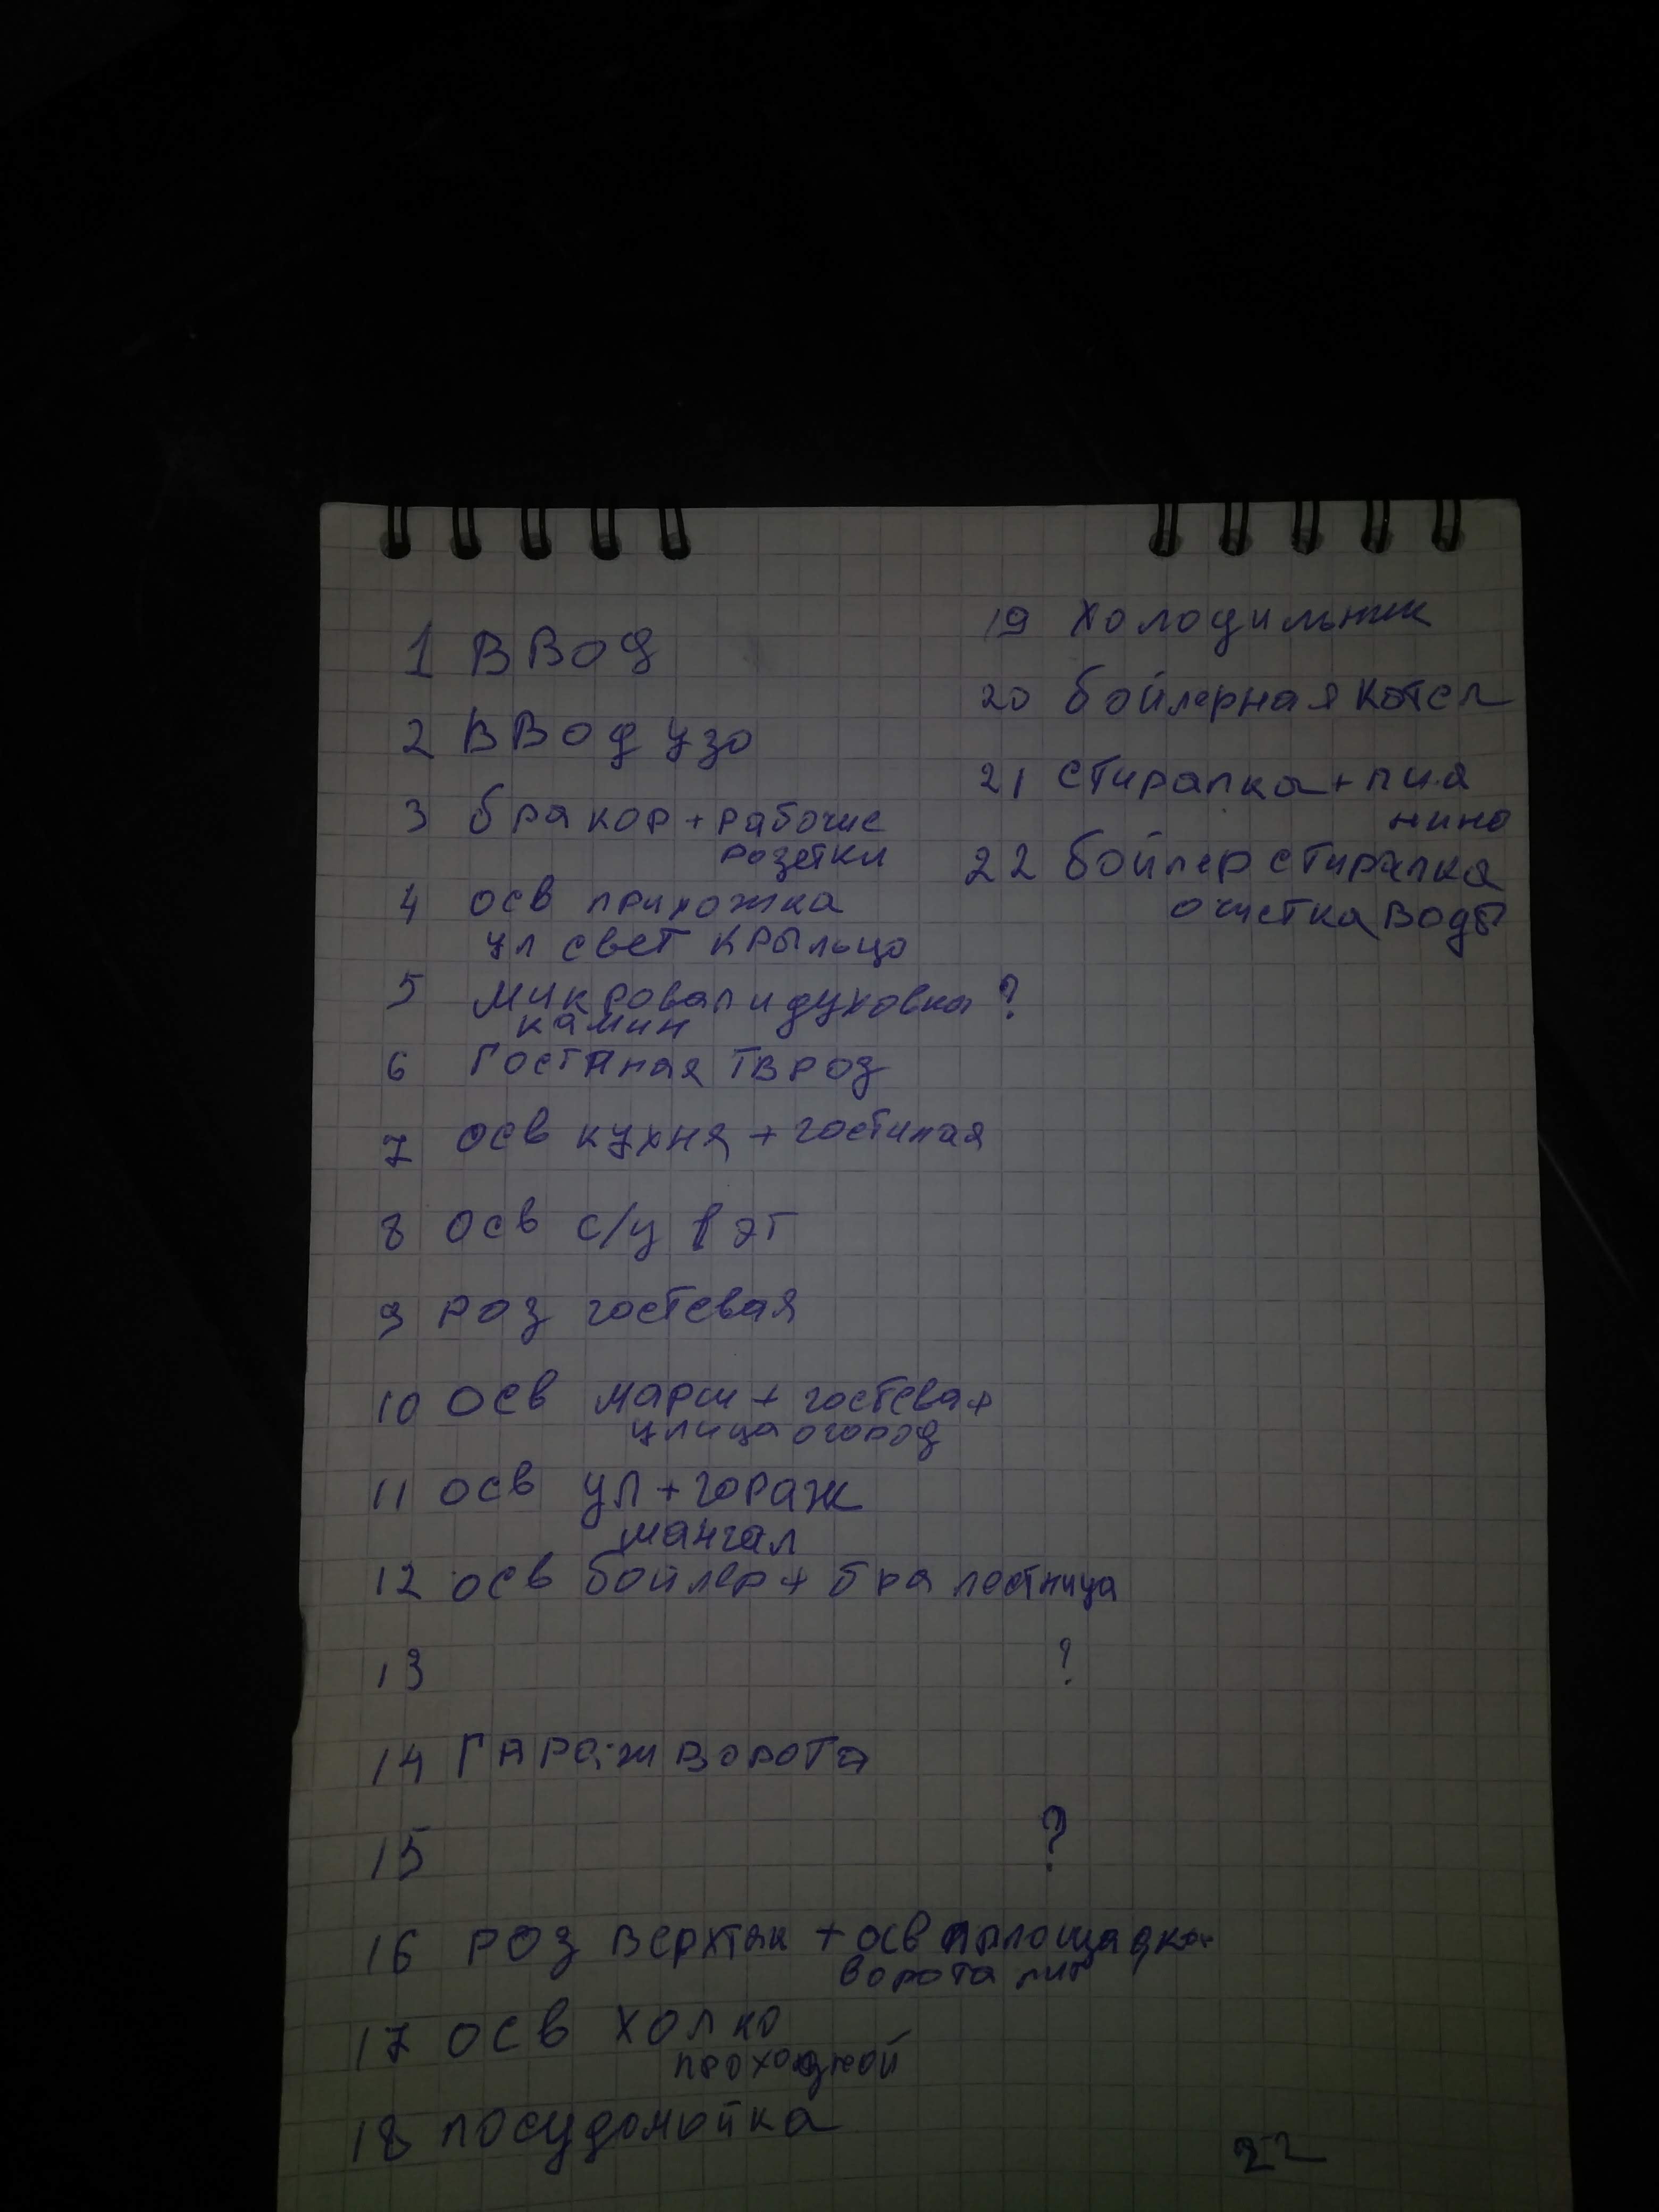 1 ВВод
2 ВВод узо
3 бра кор + рабочие
розетки
4 осв прихожка
ул свет крыльцо
5 микровал и духовка ?
камин
6 Гостиная ТВ роз
7 осв кухня + гостиная
8 осв с/у 1 эт
9 роз гостевая
10 осв марш + гостевая
улица огород
11 осв ул + гораж
мангал
12 осв бойлер + бра лестница
13 ?
14 Гараж ворота
15 ?
16 роз верхтяк + осв площадка
ворота пит
17 осв холко
проходной
18 посудомойка
19 холодильник
20 бойлерная котел
21 стиралка + пиа
нино
22 бойлер стиралка
очистка воды
22